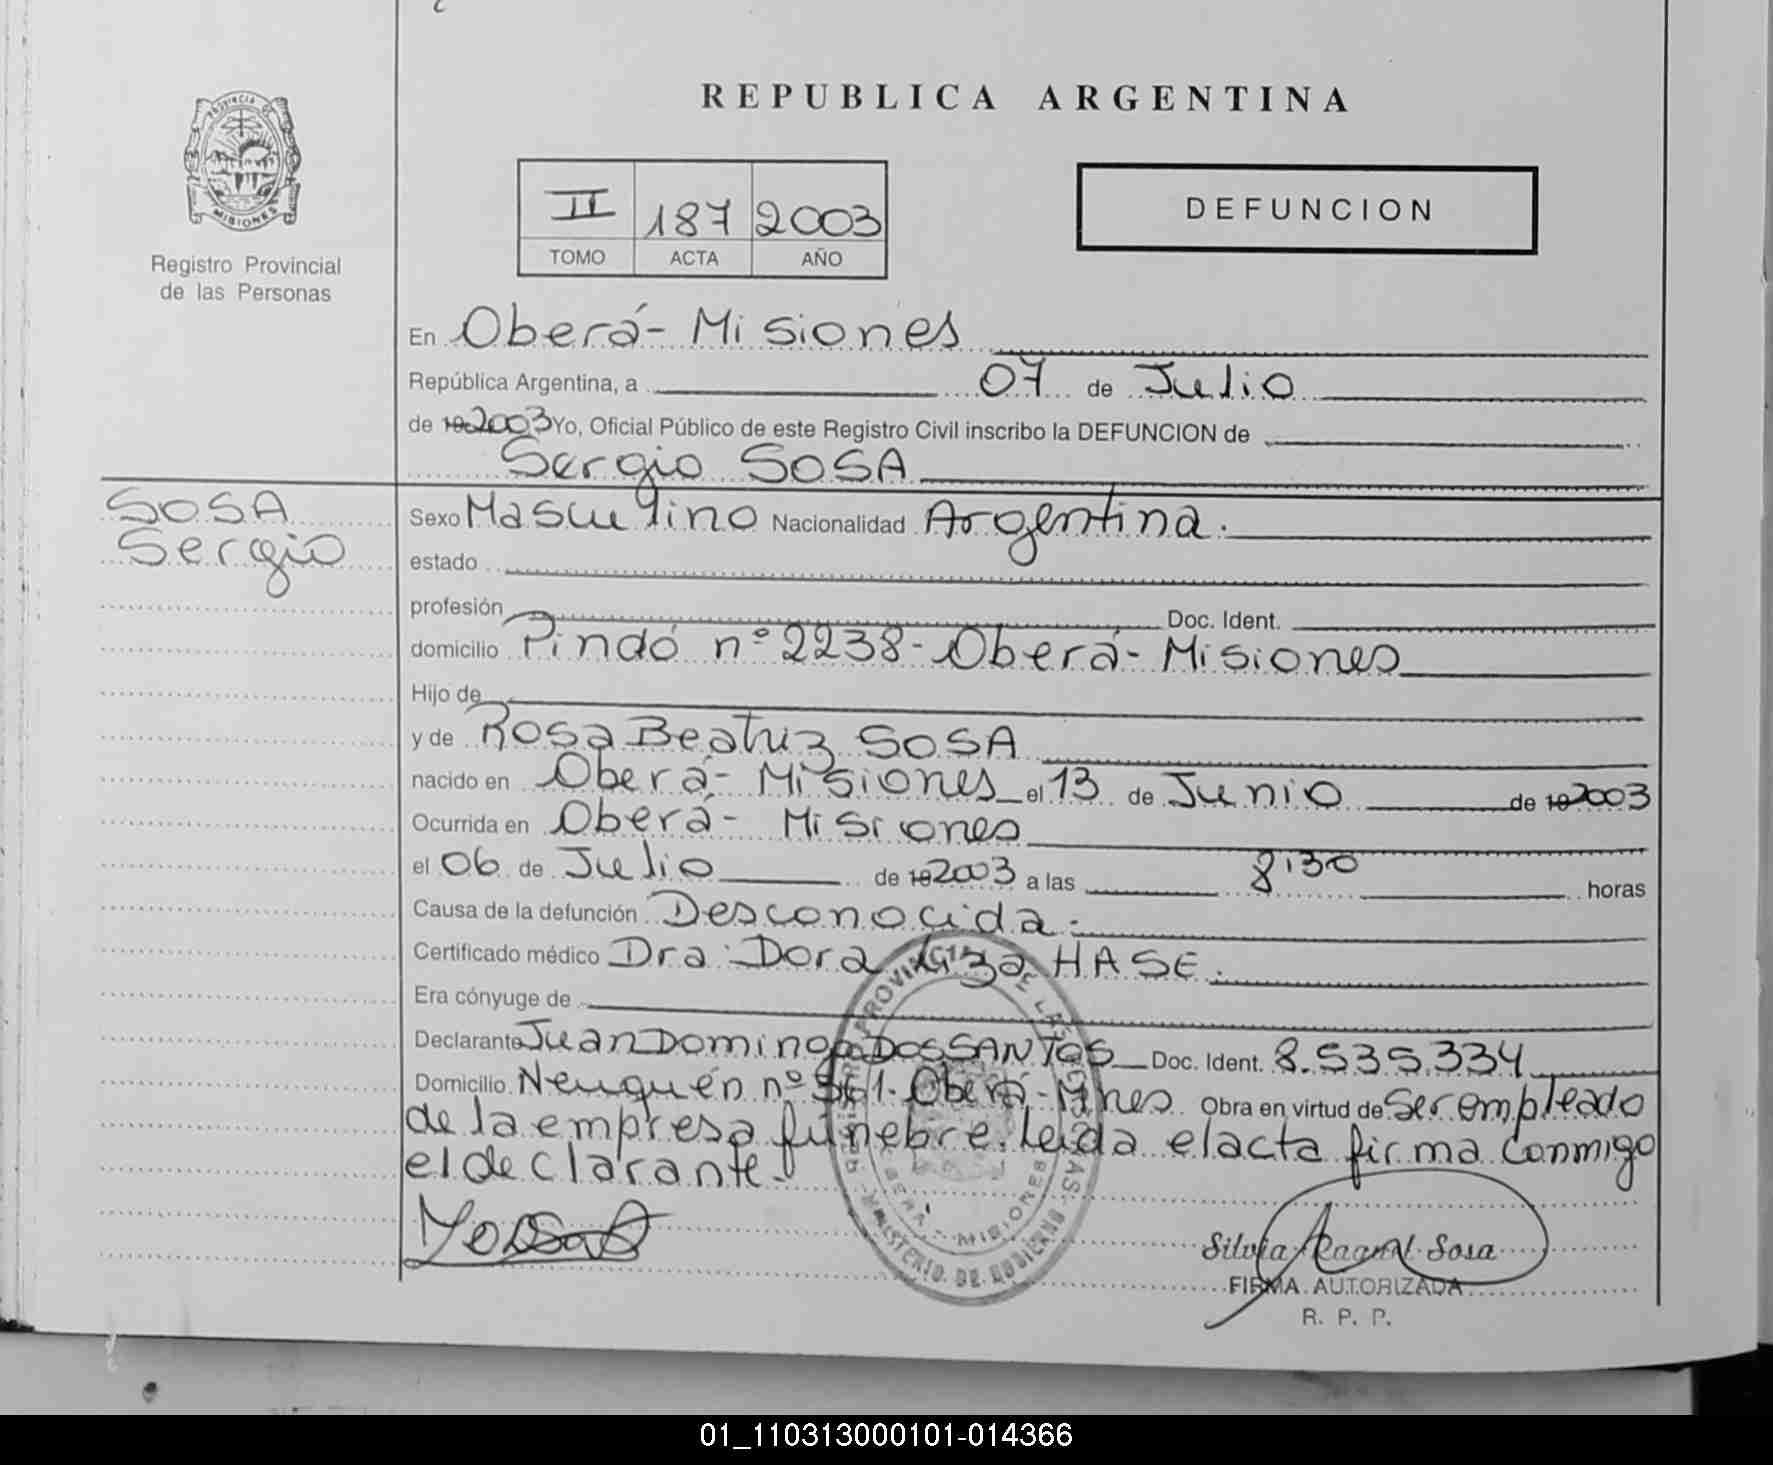 REPUBLICA ARGENTINA
PROVINCIA DE
MISIONES
Registro Provincial
de las Personas
II 187 2003
TOMO ACTA AÑO
DEFUNCION
En Oberá- Misiones
República Argentina, a 07 de Julio
de 19 2003 Yo, Oficial Público de este Registro Civil inscribo la DEFUNCION de
Sergio SOSA
SOSA
Sergio
Sexo Masculino Nacionalidad Argentina.
estado
profesión Doc. Ident.
domicilio Pindó nº 2238- Oberá- Misiones
Hijo de
y de Rosa Beatriz SOSA
nacido en Oberá- Misiones el 13 de Junio de 19 2003
Ocurrida en Oberá- Misiones
el 06 de Julio de 19 2003 a las 8:30 horas
Causa de la defunción Desconocida.
Certificado médico Dra. Dora HASE.
Era cónyuge de
Declarante Juan Domingo DOS SANTOS Doc. Ident. 8.535.334
Domicilio Neuquén nº 561. Oberá- Mnes Obra en virtud de Ser empleado
de la empresa fúnebre. leída el acta firma conmigo
el declarante.
MINISTERIO DE GOBIERNO
MISIONES
Silvia Raquel Sosa
FIRMA AUTORIZADA
R. P. P.
01_110313000101-014366